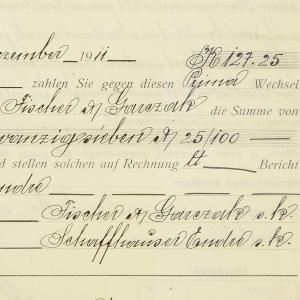 ezember 1911 K 127.25
zahlen Sie gegen diesen Prima Wechsel
Fischer & Garczak die Summe von
wanzigsieben & 25/100
d stellen solchen auf Rechnung lt Bericht
Endre
Fischer & Garczak s.k.
Schaffhauser Endre s.k.